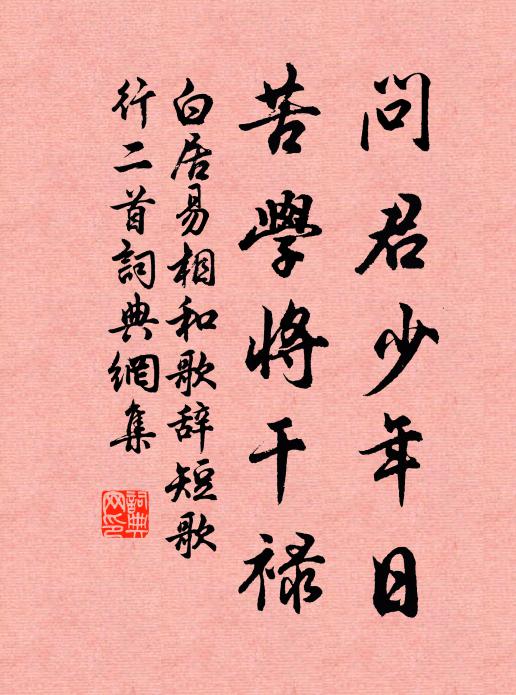 問君少年日
苦學將干祿
白居易相和歌辞短歌
行二首詞典網集
詞典
网印